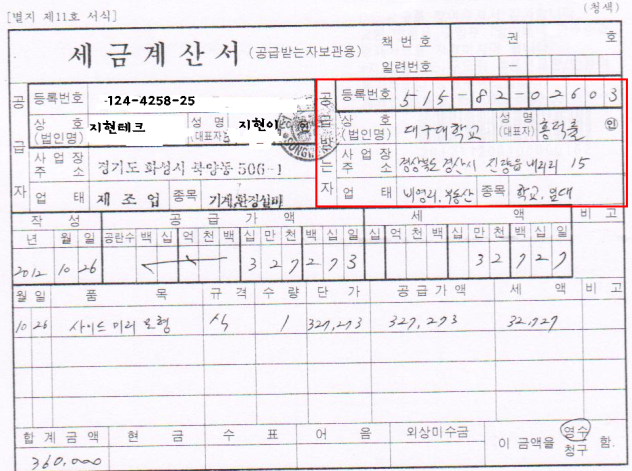 [별지 제11호 서식] (청색)
세금계산서 (공급받는자보관용) 책번호 권 호
일련번호 -
공급자 등록번호 -124-4258-25
상호(법인명) 지현테크 성명(대표자) 지현이
사업장주소 경기도 화성시 북양동 506-1
업태 재조업 종목 기계,환경설비
공급받는자 등록번호 515-82-02603
상호(법인명) 대구대학교 성명(대표자) 홍덕률 인
사업장주소 경상북도 경산시 진량읍 내리리 15
업태 비영리, 부동산 종목 학교, 임대
작성 공급가액 세액 비고
년 월 일 공란수 백 십 억 천 백 십 만 천 백 십 일 십 억 천 백 십 만 천 백 십 일
2012 10 26 3 2 7 2 7 3 3 2 7 2 7
월 일 품목 규격 수량 단가 공급가액 세액 비고
10 26 사이드 미러 모형 식 1 327,273 327,273 32,727
합계금액 현금 수표 어음 외상미수금 이 금액을 영수 청구 함.
360,000